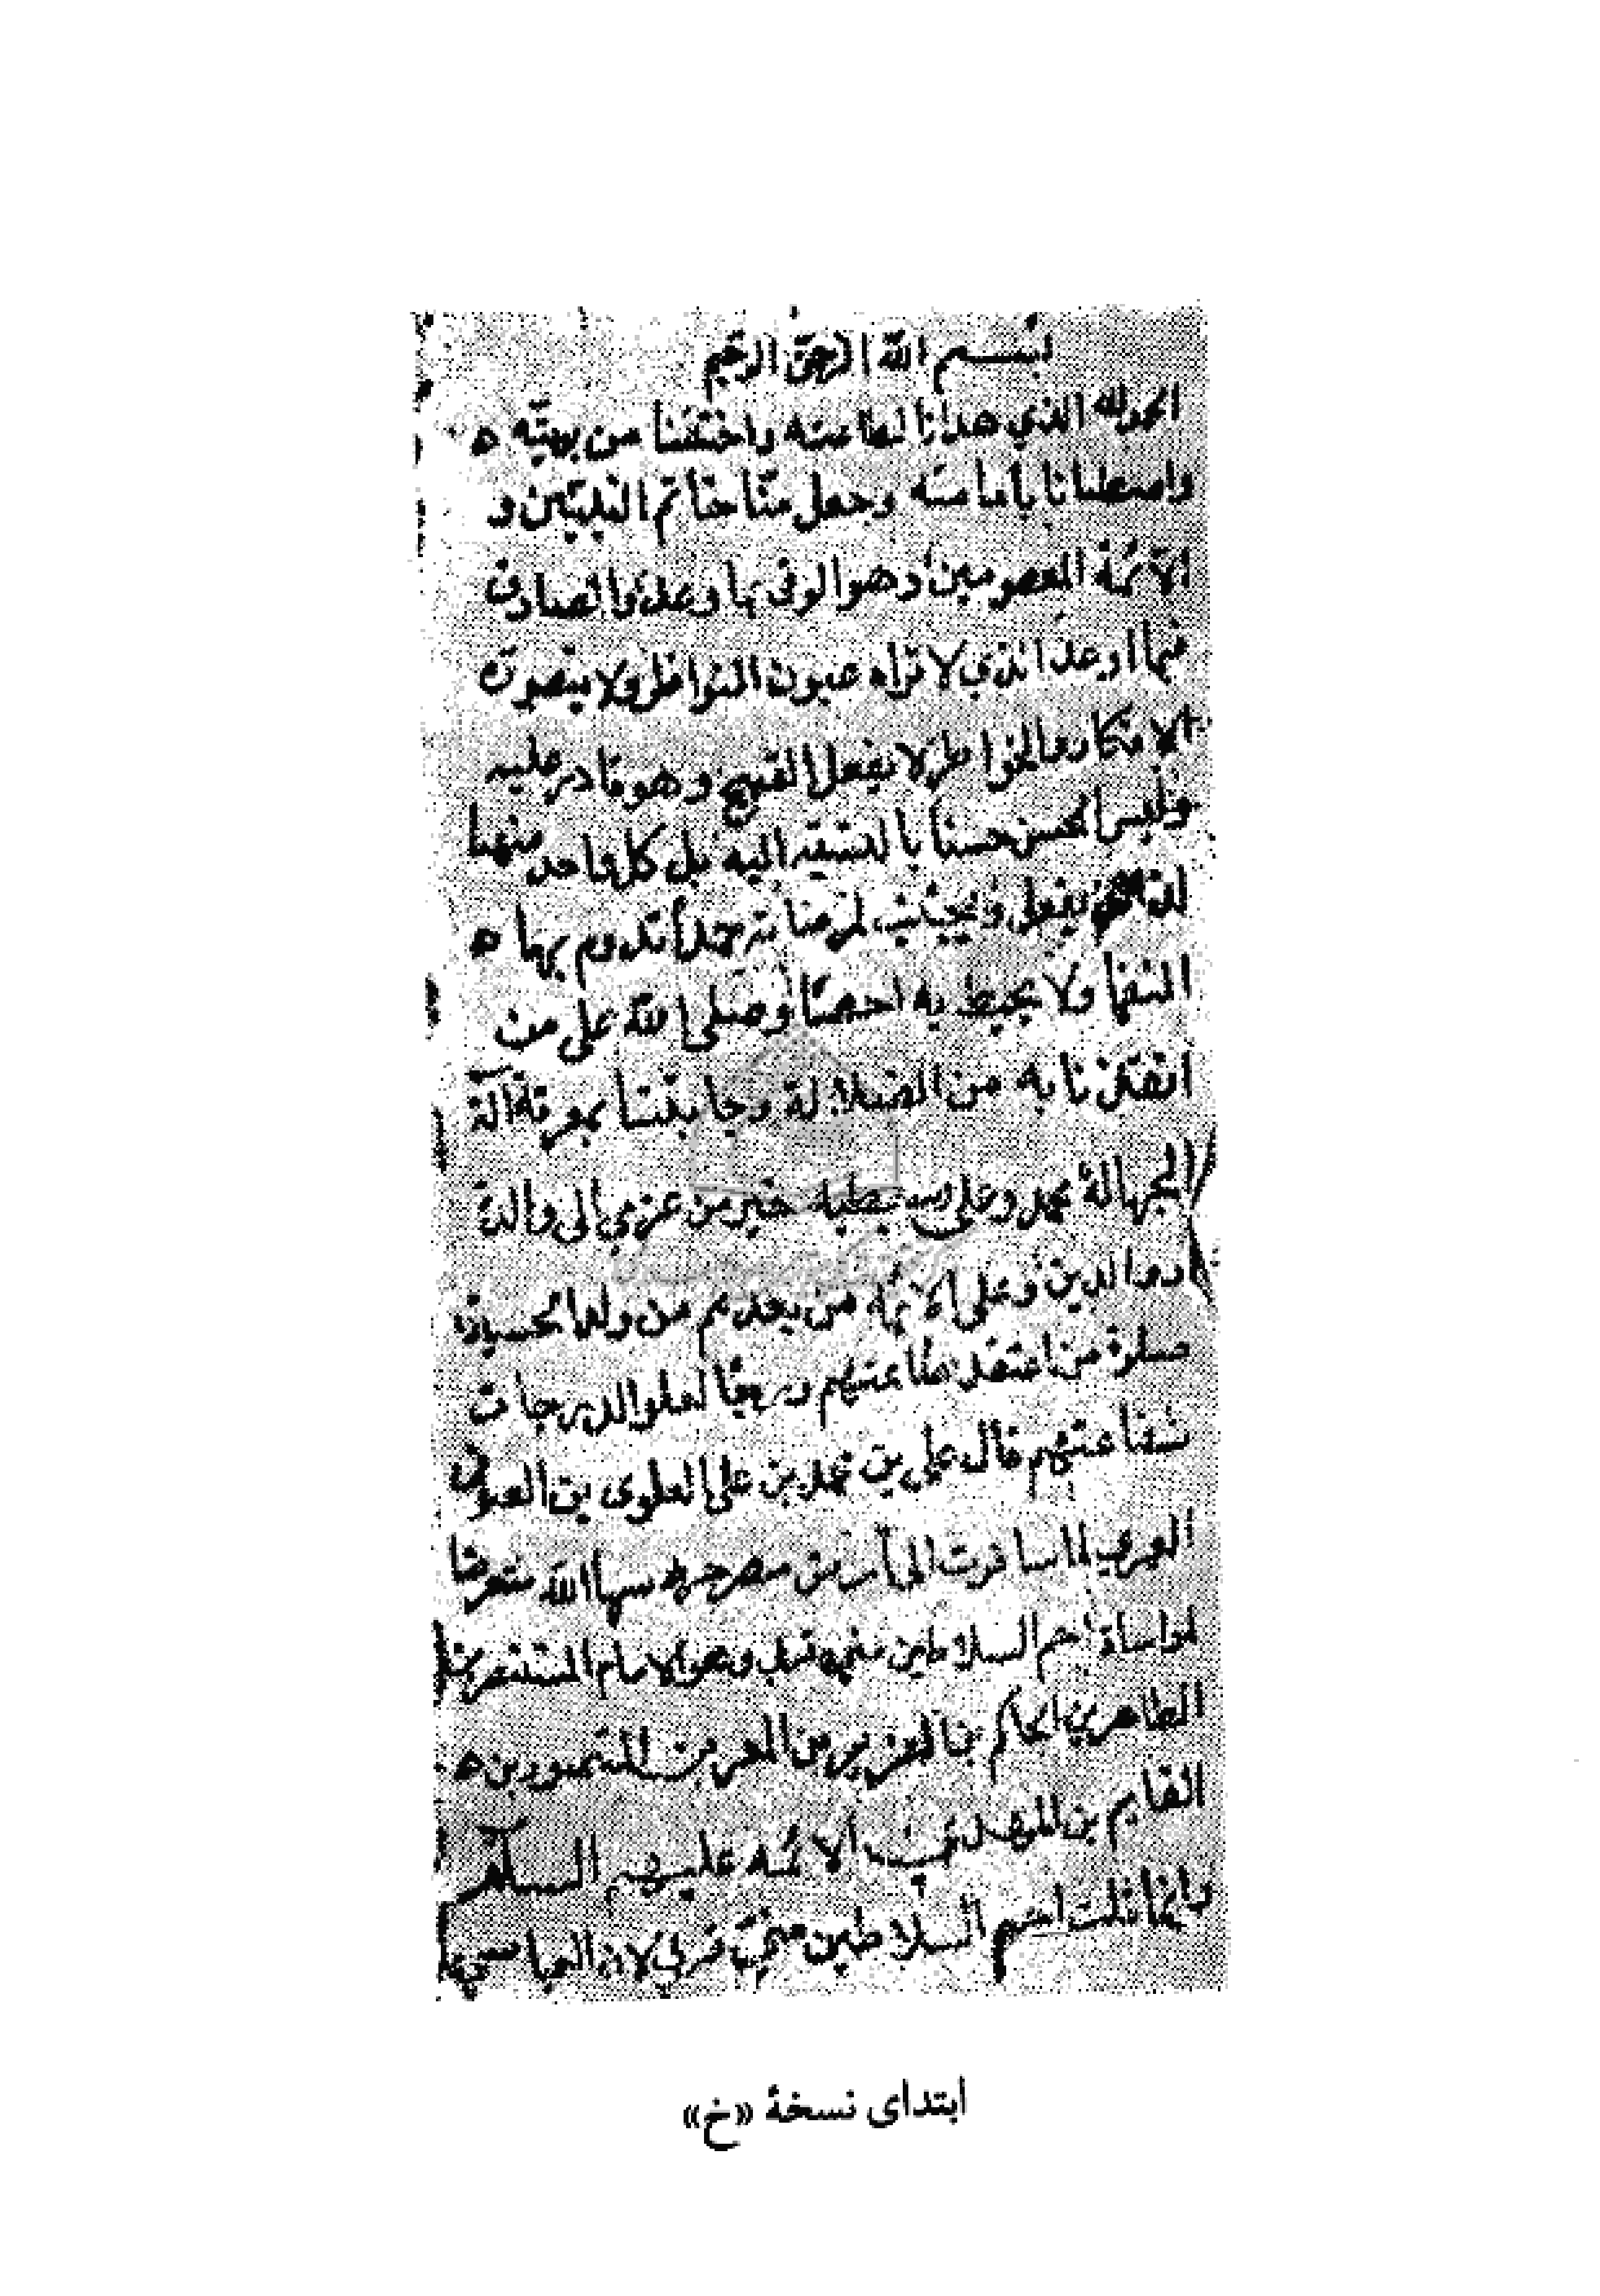 بسم الله الرحمن الرحيم
الحمد لله الذي هدانا لطاعته واختصنا من بريته ه
واصطفانا بامامته وجعل منّا خاتم النبيّين و
الائمة المعصومين وهو الوفى بما وعد والصادق
فيما اوعد الذي لا تراه عيون النواظر ولا يتصوره
الافكار والخواطر لا يفعل القبيح وهو قادر عليه
وليس الحسن حسنا بالنسبة اليه بل كل واحد منهما
يفعل حمدا تدوم بها ه
النعما ولا يحيط به احصا وصلى الله على من
انقذنا به من الضلالة وجا بعثنا بمعرفة آلة
الجهالة محمد وعلى خير من عزي الى والد
الدين وعلى الائمة من بعدهم من ولد الحسين
صلوة من اعتقد طاعتهم ورقا لعلو الدرجات
شفاعتهم قال علي بن محمد بن على العلوى بن الصوفى
العمري لما سافرت الى مصر حرسها الله متعرضا
لمواساة السلاطين وهو الامام المستنصر بن
الظاهر بن الحاكم بن العزيز بن المعز بن المنصور بن ه
القايم بن المهدي الائمة عليهم السلام
وانما قلت السلاطين لان العباسي
ابتدای نسخهٔ «خ»